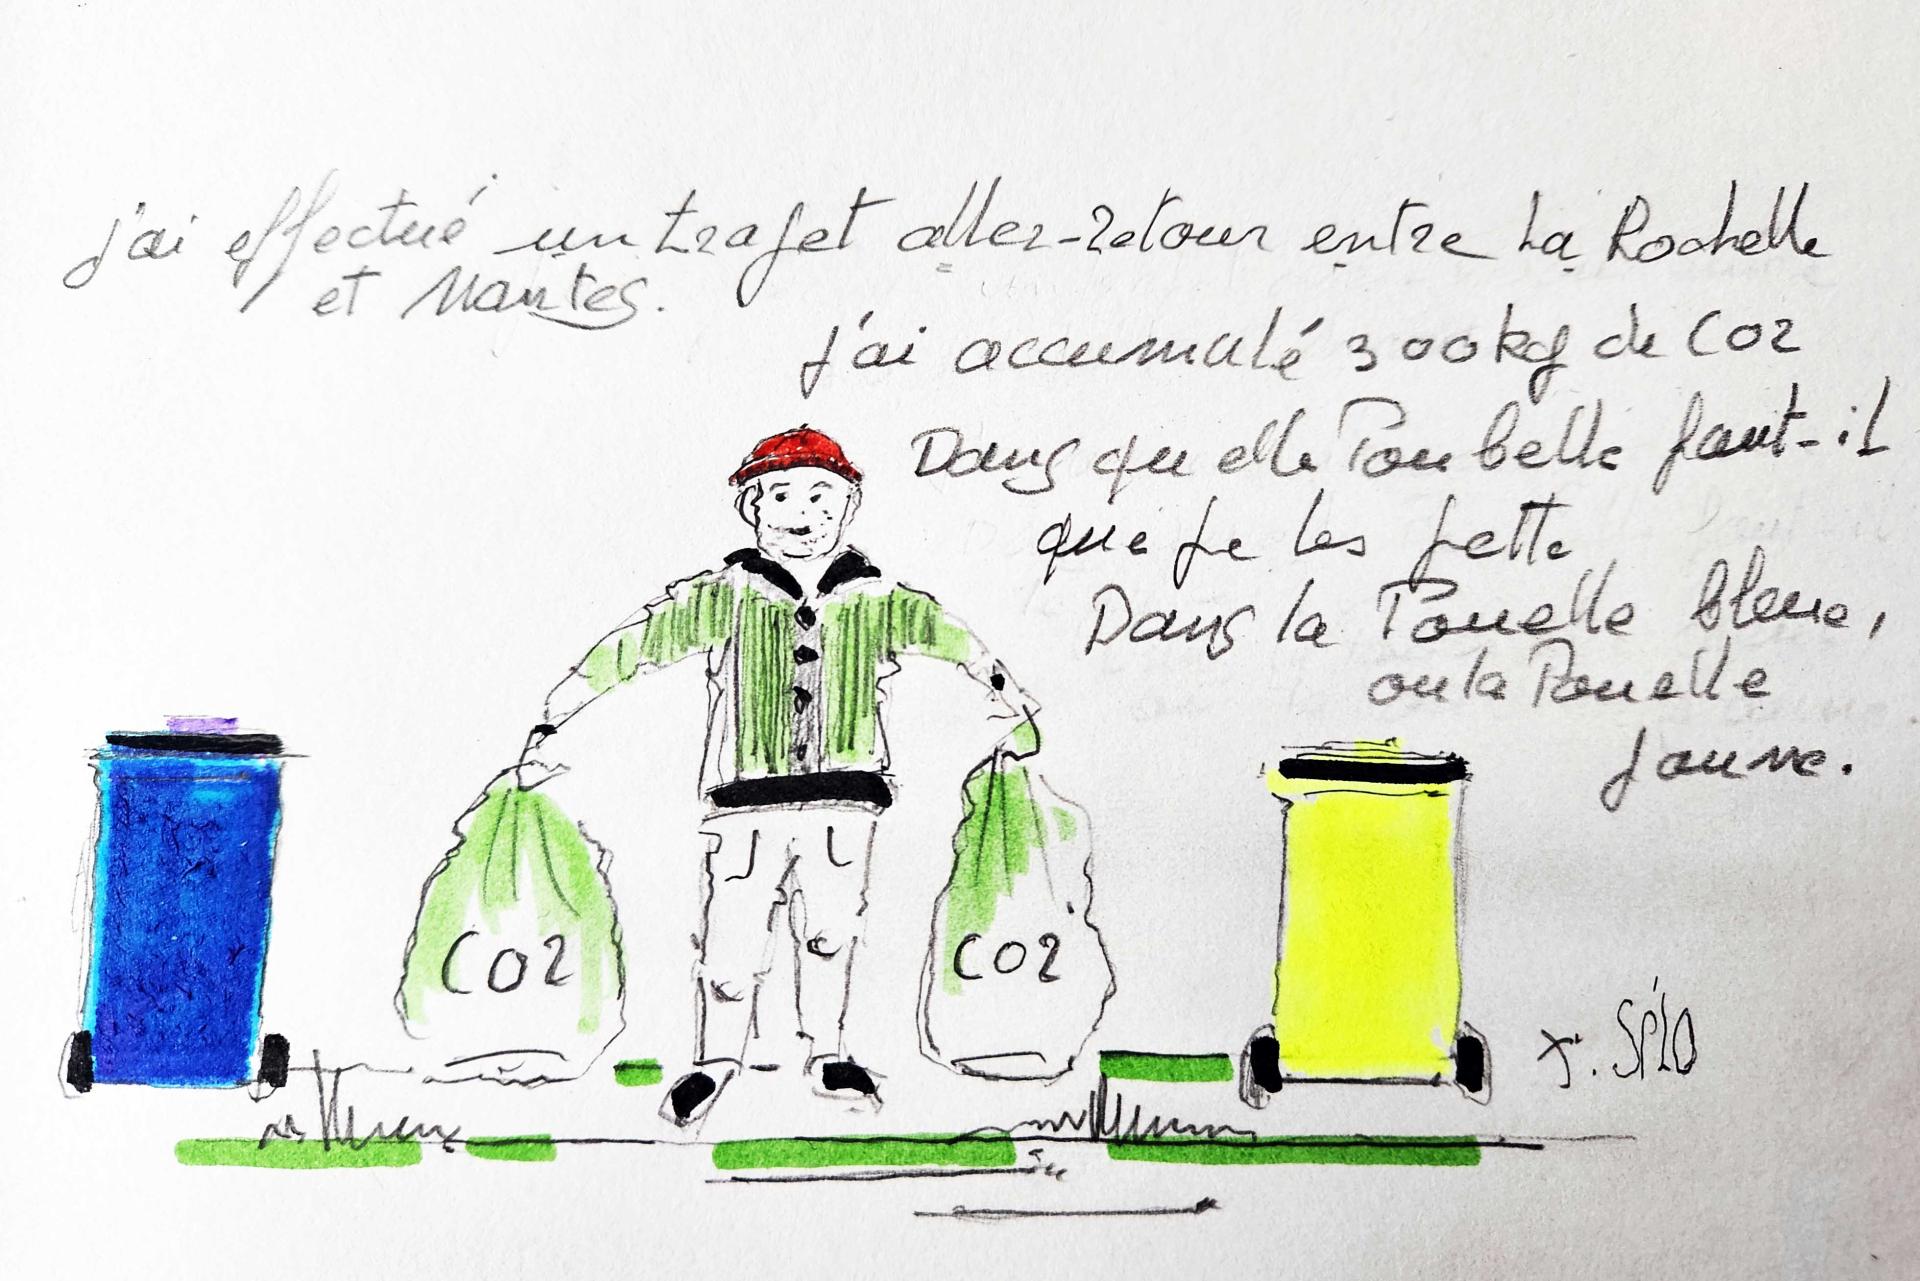 j'ai effectué un trajet aller-retour entre La Rochelle
et Nantes.
j'ai accumulé 300kg de CO2
Dans quelle Poubelle faut-il
que je les jette
Dans la Pouelle bleue,
ou la Pouelle
jaune.
CO2
CO2
J. SPLO